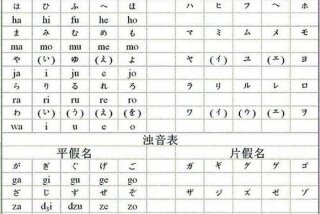 は ひ ふ へ ほ ハ ヒ フ ヘ ホ
ha hi fu he ho
ま み む め も マ ミ ム メ モ
ma mo mu me mo
や (い) ゆ (え) よ ヤ (イ) ユ (エ) ヨ
ja i ju e jo
ら り る れ ろ ラ リ ル レ ロ
ra ri ru re ro
わ (い) (う) (え) (を) ワ (イ) (ウ) (エ) ヲ
wa i u e o
浊音表
平假名 片假名
が ぎ ぐ げ ご ガ ギ グ ゲ ゴ
ga gi gu ge go
ざ じ ず ぜ ぞ ザ ジ ズ ゼ ゾ
za dʒi dzu ze zo